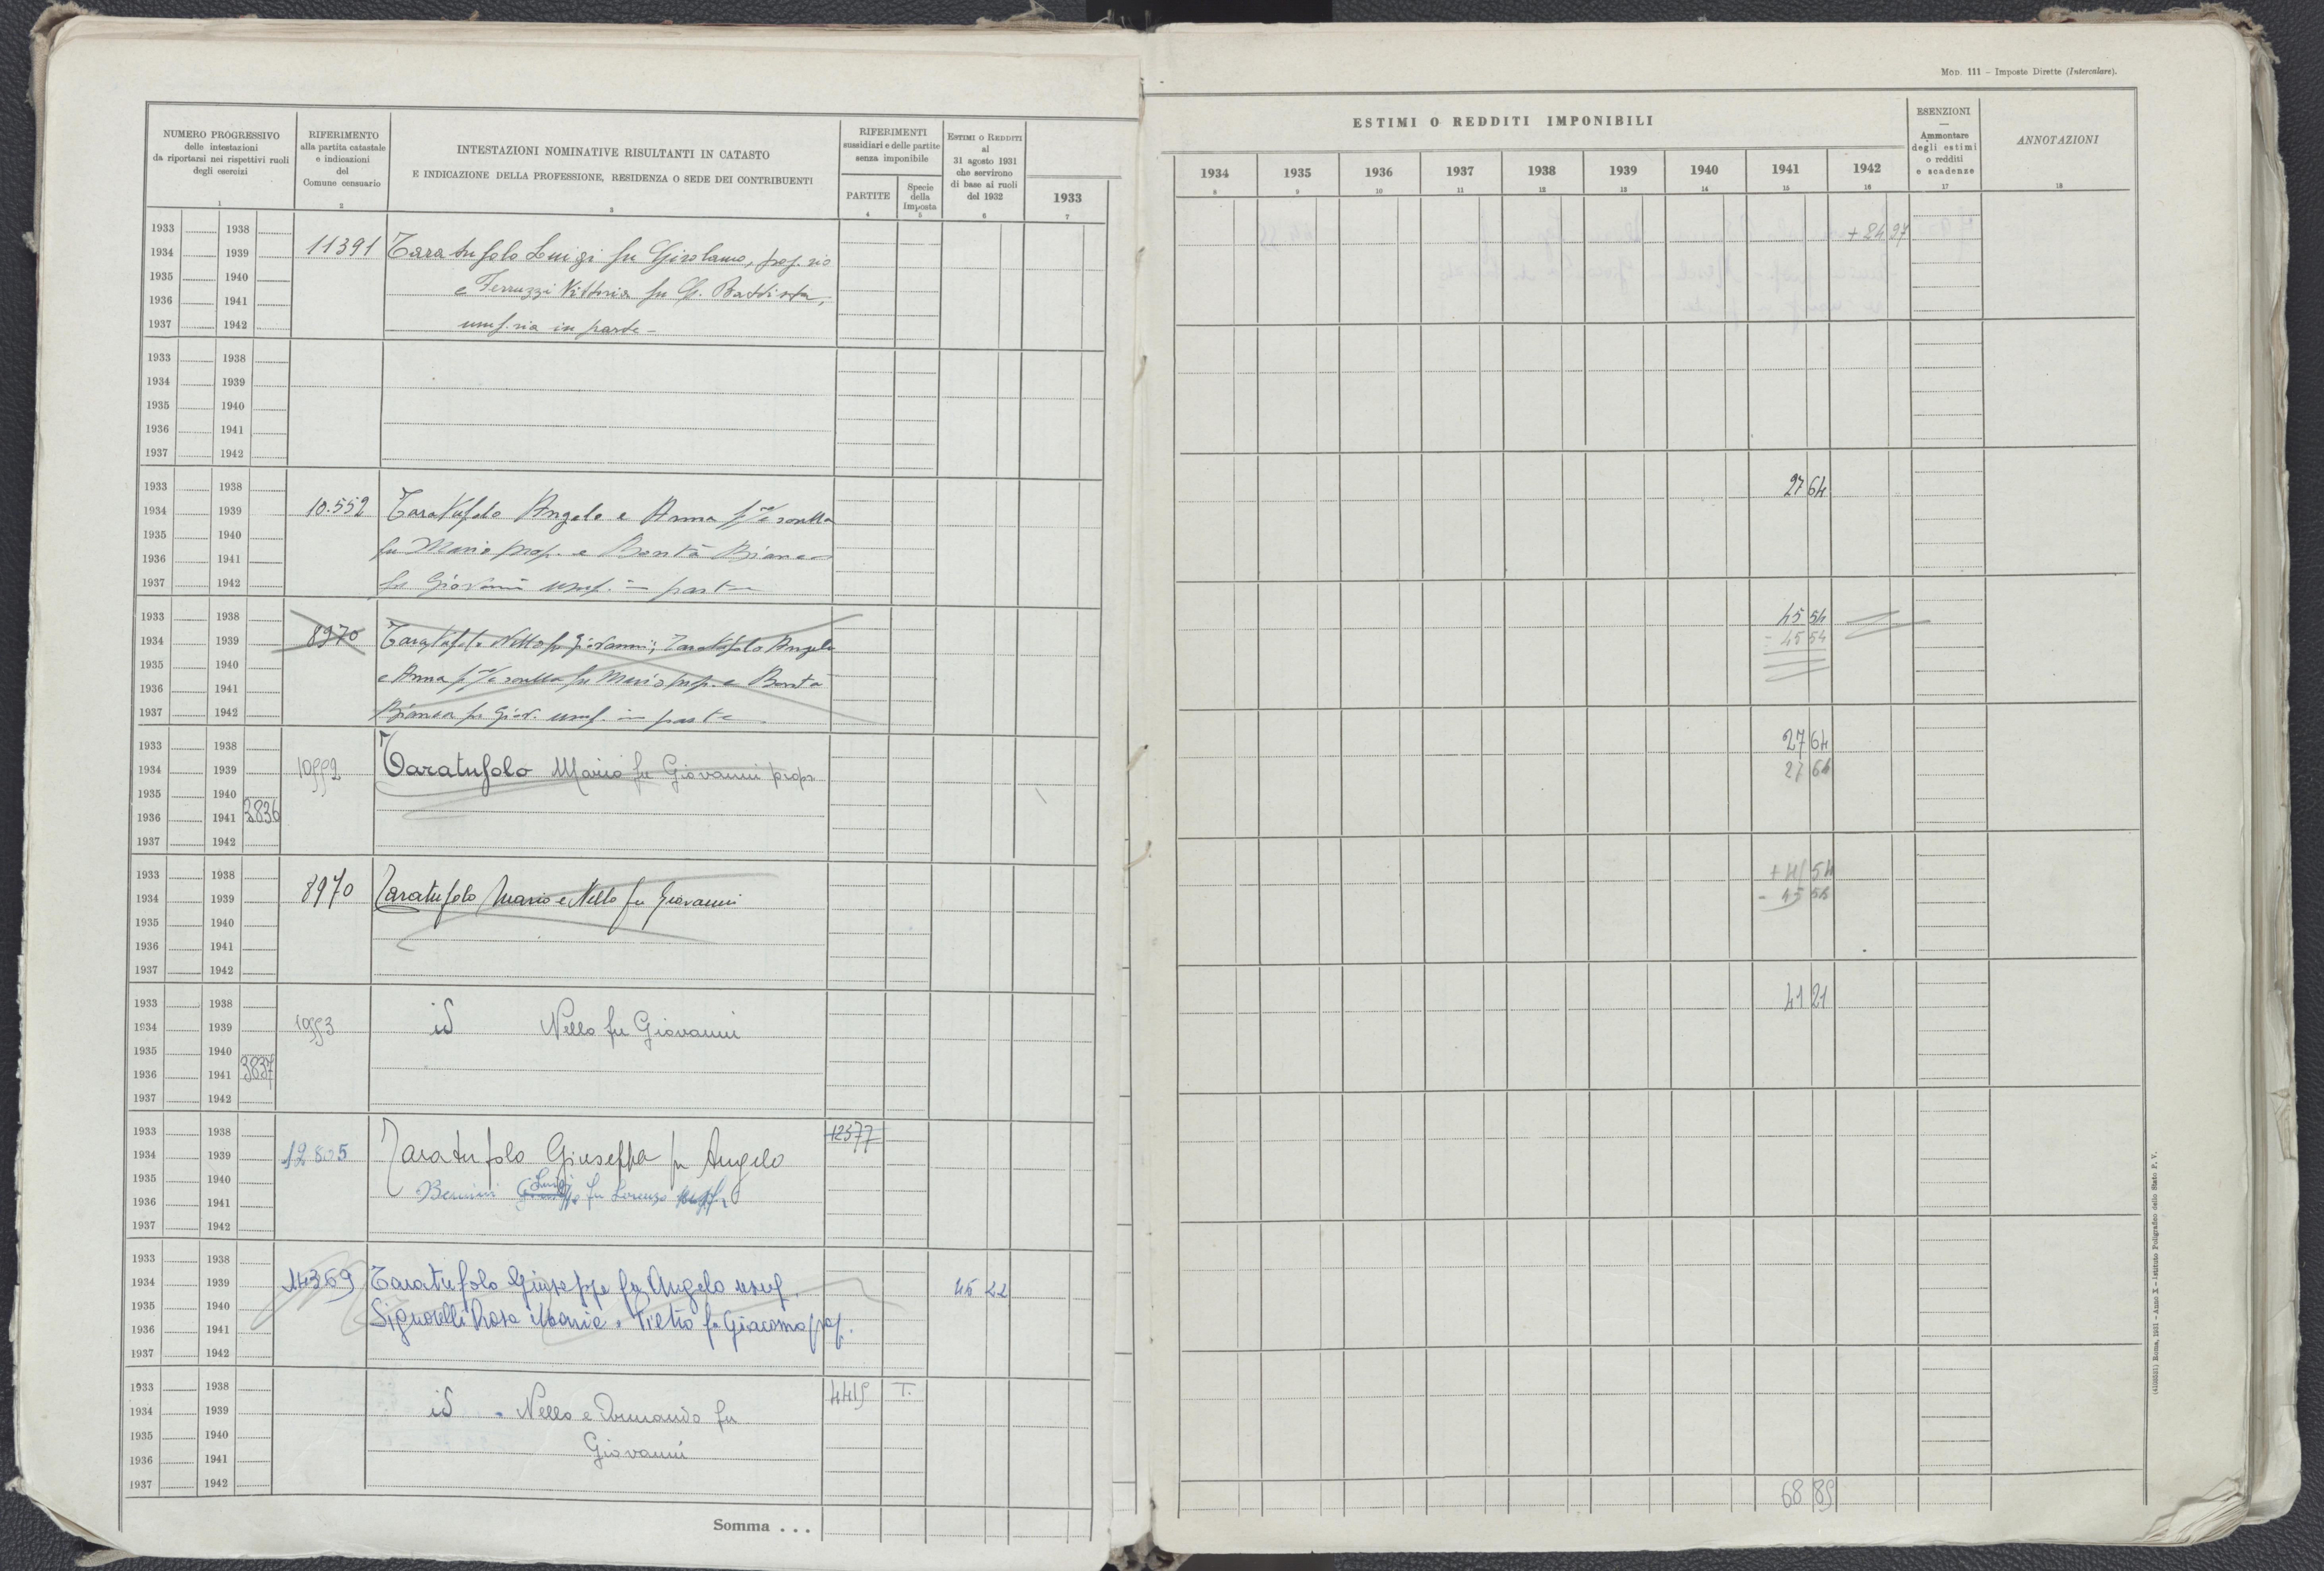 MOD. 111 – Imposte Dirette (Intercalare).
NUMERO PROGRESSIVO
delle intestazioni
da riportarsi nei rispettivi ruoli
degli esercizi
1
RIFERIMENTO
alla partita catastale
e indicazioni
del
Comune censuario
2
INTESTAZIONI NOMINATIVE RISULTANTI IN CATASTO
E INDICAZIONE DELLA PROFESSIONE, RESIDENZA O SEDE DEI CONTRIBUENTI
3
RIFERIMENTI
sussidiari e delle partite
senza imponibile
PARTITE
4
Specie
della
Imposta
5
ESTIMI O REDDITI
al
31 agosto 1931
che servirono
di base ai ruoli
del 1932
6
1933
7
ESTIMI O REDDITI IMPONIBILI
1934 1935 1936 1937 1938 1939 1940 1941 1942
8 9 10 11 12 13 14 15 16
ESENZIONI
—
Ammontare
degli estimi
o redditi
e scadenze
17
ANNOTAZIONI
18
1933 1938
1934 1939
1935 1940
1936 1941
1937 1942
11391 Taratufolo Luigi fu Girolamo, prop.rio
e Ferruzzi Vittoria fu G. Battista,
usuf.ria in parte –
+ 24 97
1933 1938
1934 1939
1935 1940
1936 1941
1937 1942
1933 1938
1934 1939
1935 1940
1936 1941
1937 1942
10.552 Taratufolo Angelo e Anna
fu Mario prop. e Bontà Bianca
fu Giovanni usuf. in parte
27 64
1933 1938
1934 1939
1935 1940
1936 1941
1937 1942
8970 Taratufolo Nello fu Giovanni; Taratufolo Angelo
e Anna fu Mario prop. e Bontà
Bianca fu Giov. usuf. in parte
45 54
- 45 54
1933 1938
1934 1939
1935 1940
1936 1941 3836
1937 1942
10552 Taratufolo Mario fu Giovanni propr
27 64
27 64
1933 1938
1934 1939
1935 1940
1936 1941
1937 1942
8970 Taratufolo Mario e Nello fu Giovanni
+ 45 54
- 45 54
1933 1938
1934 1939
1935 1940
1936 1941 3837
1937 1942
10553 id Nello fu Giovanni
41 21
1933 1938
1934 1939
1935 1940
1936 1941
1937 1942
12577
12805 Taratufolo Giuseppa fu Angelo
Luigi
fu Lorenzo
1933 1938
1934 1939
1935 1940
1936 1941
1937 1942
14369 Taratufolo Giuseppe fu Angelo usuf.
Signorelli Rosa Maria e Pietro fu Giacomo prop.
45 22
1933 1938
1934 1939
1935 1940
1936 1941
1937 1942
4415 T.
id Nello e Armando fu
Giovanni
Somma . . .
68 85
(4100821) Roma, 1931 – Anno X – Istituto Poligrafico dello Stato P. V.